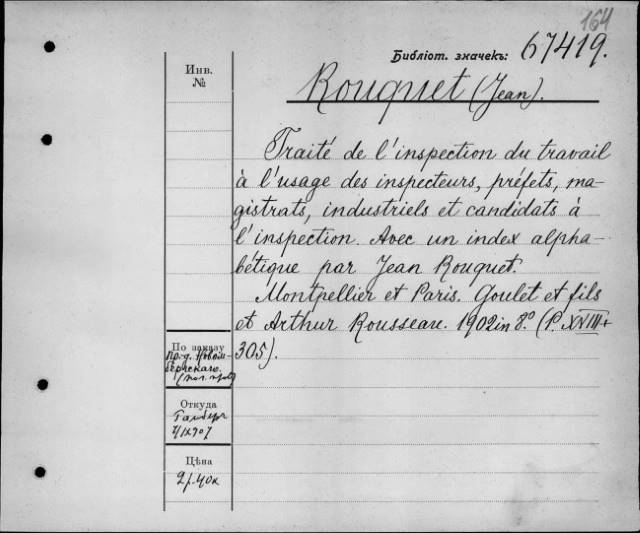 164
Библіот. значекъ: 67419.
Инв.
№
Rouquet (Jean).
Traité de l'inspection du travail
à l'usage des inspecteurs, préfets, ma-
gistrats, industriels et candidats à
l'inspection. Avec un index alpha-
bétique par Jean Rouquet.
Montpellier et Paris. Goulet et fils
et Arthur Rousseau. 1902 in 8.º (P. XVIII+
305).
По заказу
Откуда
Цѣна
2 р. 40 к